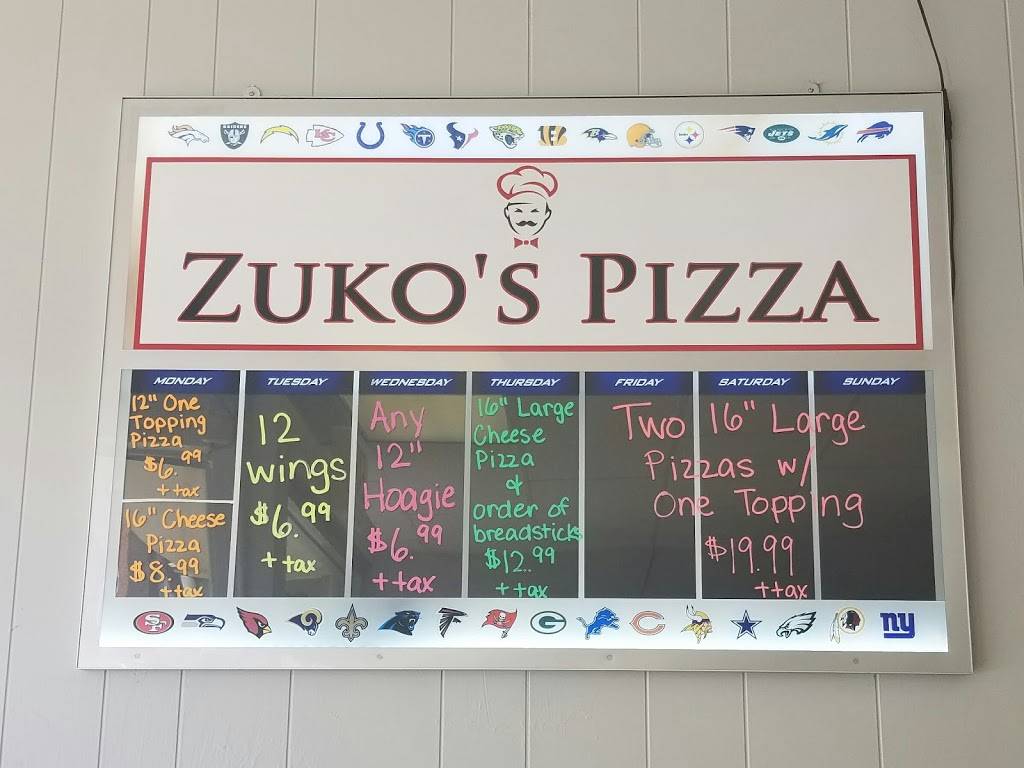 ZUKO'S PIZZA
MONDAY
12" One
Topping
Pizza
$6.99
+tax
16" Cheese
Pizza
$8.99
+tax
TUESDAY
12
wings
$6.99
+tax
WEDNESDAY
Any
12"
Hoagie
$6.99
+tax
THURSDAY
16" Large
Cheese
Pizza
&
order of
breadsticks
$12.99
+tax
FRIDAY SATURDAY SUNDAY
Two 16" Large
Pizzas w/
One Topping
$19.99
+tax
RAIDERS
KC
JETS
SF
G
C
ny